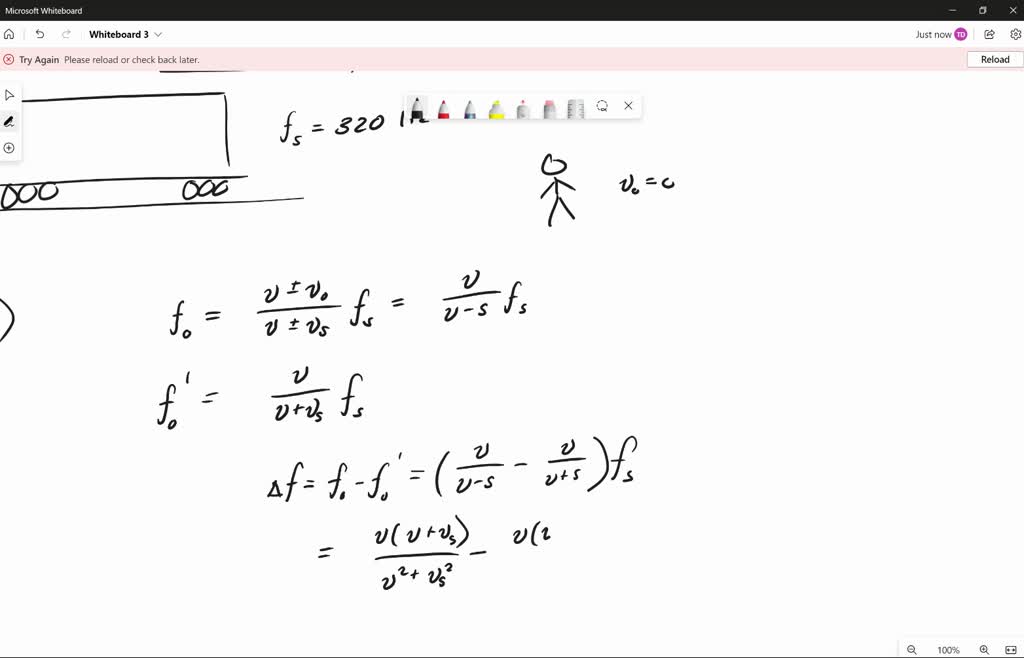 Microsoft Whiteboard
Whiteboard 3
Just now TD
Try Again Please reload or check back later.
Reload
f_s = 320 Hz
v_o = 0
f_o = \frac{v ± v_o}{v ± v_s} f_s = \frac{v}{v - s} f_s
f_o' = \frac{v}{v + v_s} f_s
Δf = f_o - f_o' = (\frac{v}{v - s} - \frac{v}{v + s}) f_s
= \frac{v(v + v_s)}{v^2 + v_s^2} - v(
100%